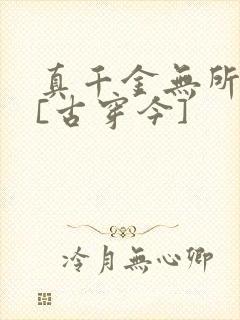 真千金無所
[古穿今]
冷月無心卿